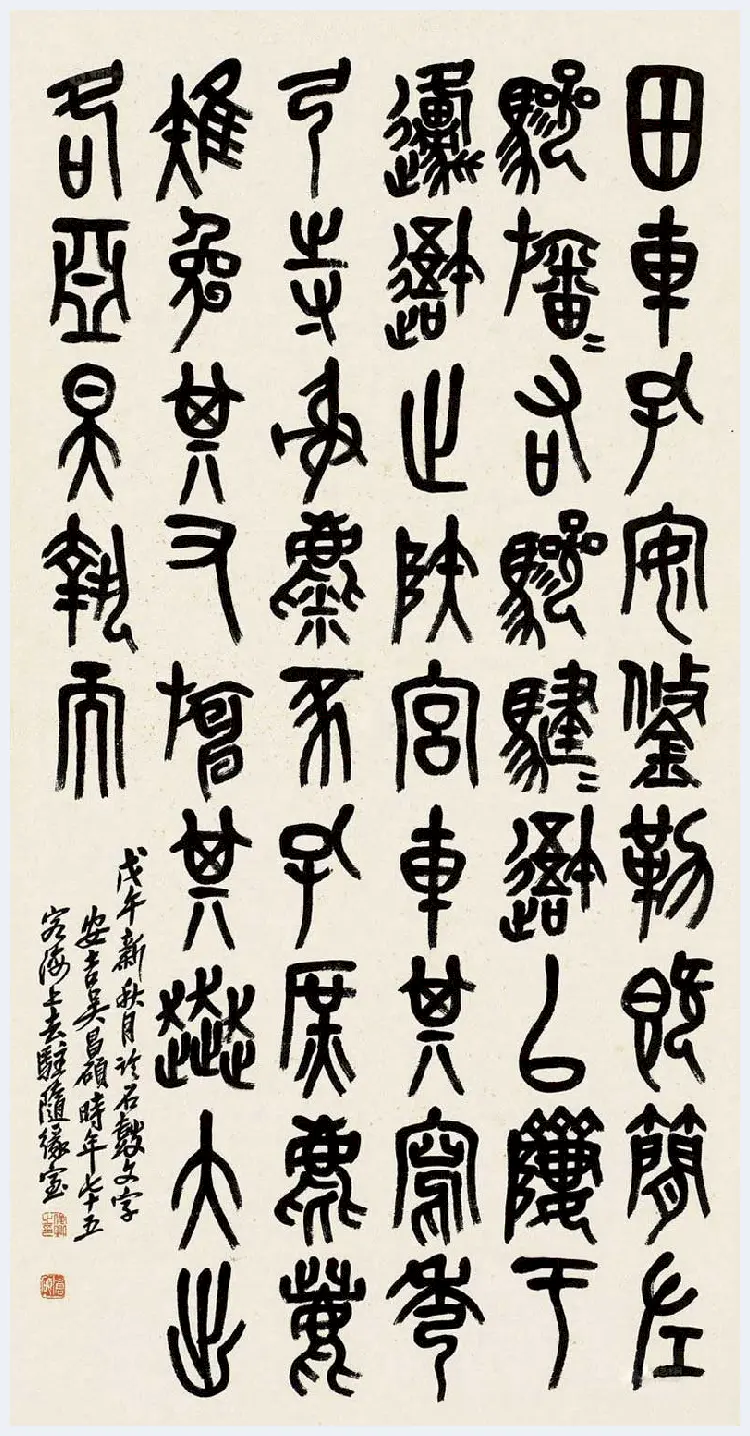 田車孔安鋚勒既簡左
驂旛=右驂騝=吾以隮于
邍吾止陜宮車其寫秀
弓寺射麋豕孔庶麀鹿
雉兔其又旃其奔大出
各亞昊執而
戊午新秋月石鼓文字
安吉吳昌碩時年七十五
客海上去駐隨緣室